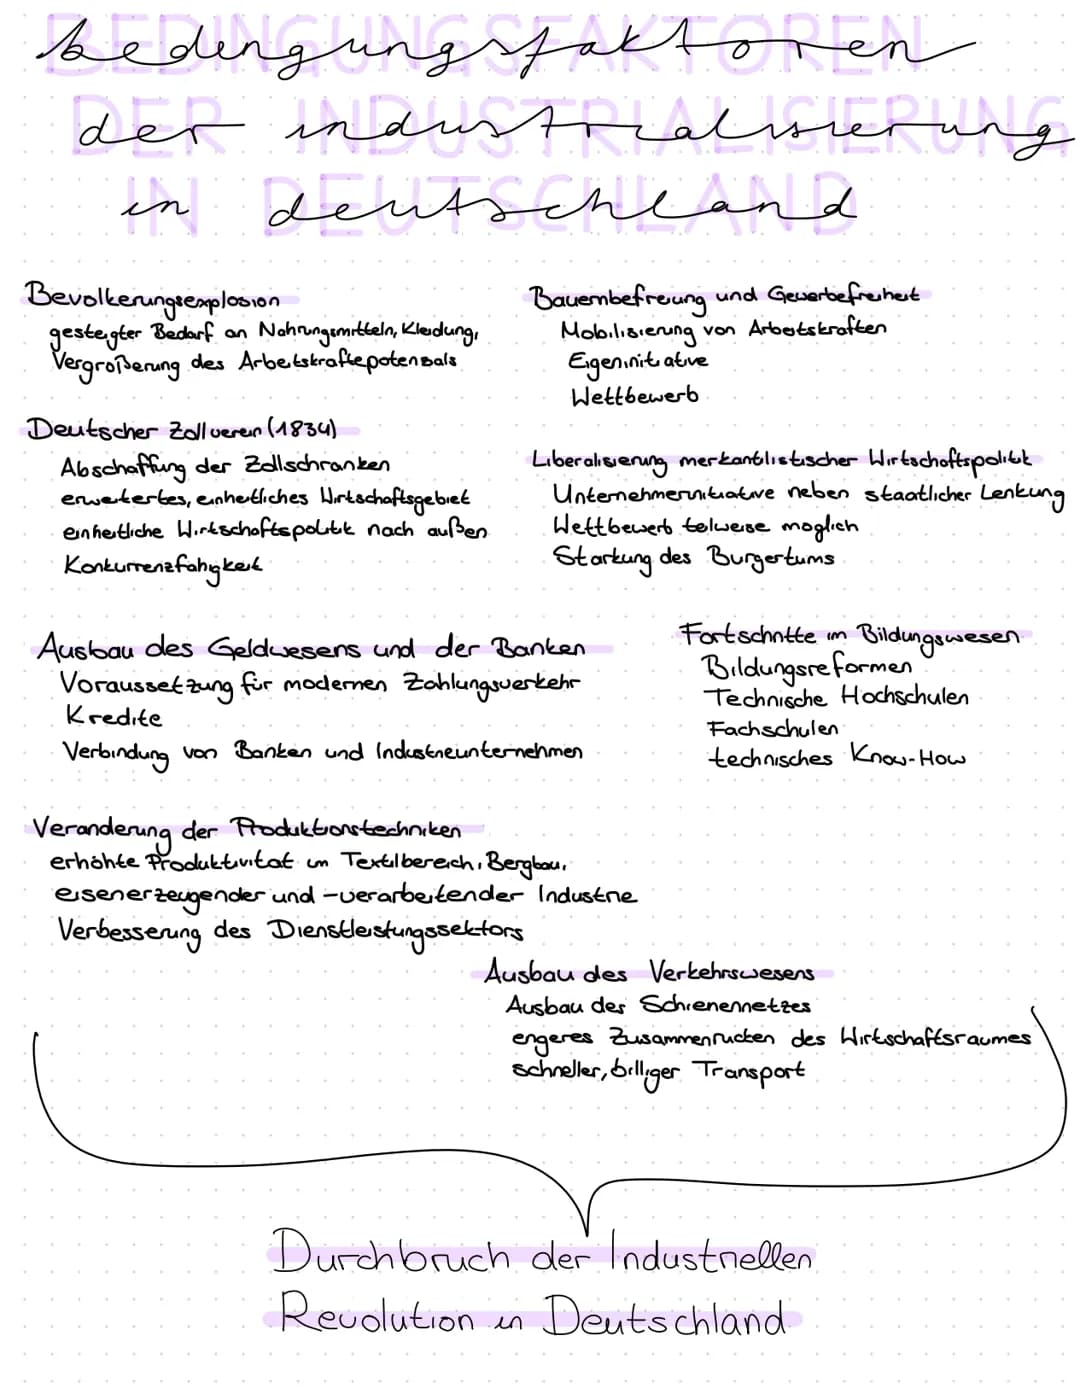 bedingungsfaktoren
der industrialisierung
in deutschland
Bevölkerungsexplosion
gesteigter Bedarf an Nahrungsmitteln, Kleidung,
Vergroßerung des Arbeitskraftepotensals
Deutscher Zollverein (1834)
Abschaffung der Zollschranken
erweitertes, einheitliches Wirtschaftsgebiet
einheitliche Wirtschaftspolitik nach außen
Konkurrenzfahigkeit
Bauernbefreiung und Gewerbefreiheit
Mobilisierung von Arbeitskraften
Eigeninitiative
Wettbewerb
Liberalisierung merkantilistischer Wirtschaftspolitik
Unternehmerinitiative neben staatlicher Lenkung
Wettbewerb teilweise moglich
Starkung des Burgertums
Ausbau des Geldwesens und der Banken
Voraussetzung für modernen Zahlungsverkehr
Kredite
Verbindung von Banken und Industrieunternehmen
Fortschritte im Bildungswesen
Bildungsreformen
Technische Hochschulen
Fachschulen
technisches Know-How
Veranderung der Produktionstechniken
erhöhte Produktivitat im Textilbereich, Bergbau,
eisenerzeugender und -verarbeitender Industrie
Verbesserung des Dienstleistungssektors
Ausbau des Verkehrswesens
Ausbau des Schienennetzes
engeres Zusammenrucken des Wirtschaftsraumes
schneller, billiger Transport
Durchbruch der Industriellen
Revolution in Deutschland